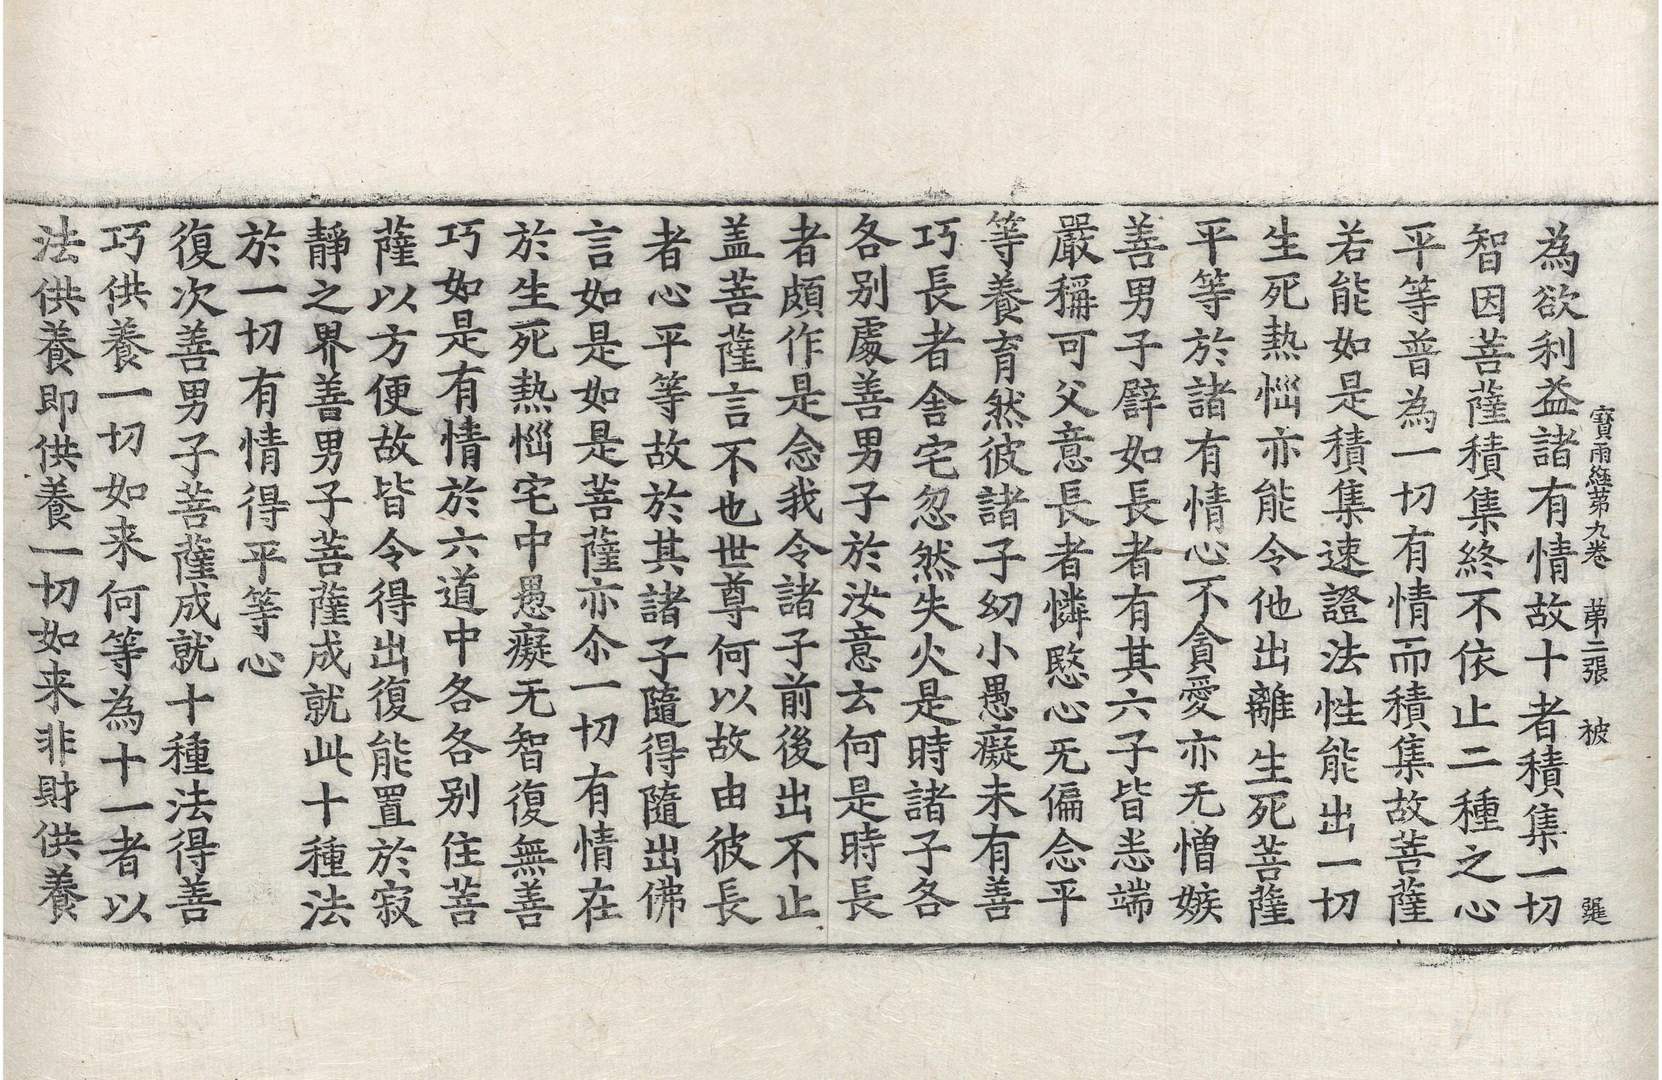 寶雨經第九卷 第二張 被
為欲利益諸有情故十者積集一切
智因菩薩積集終不依止二種之心
平等普為一切有情而積集故菩薩
若能如是積集速證法性能出一切
生死熱惱亦能令他出離生死菩薩
平等於諸有情心不貪愛亦无憎嫉
善男子辟如長者有其六子皆恚端
嚴稱可父意長者憐愍心无偏念平
等養育然彼諸子幼小愚癡未有善
巧長者舍宅忽然失火是時諸子各
各別處善男子於汝意云何是時長
者頗作是念我令諸子前後出不止
盖菩薩言不也世尊何以故由彼長
者心平等故於其諸子隨得隨出佛
言如是如是菩薩亦尒一切有情在
於生死熱惱宅中愚癡无智復無善
巧如是有情於六道中各各別住菩
薩以方便故皆令得出復能置於寂
靜之界善男子菩薩成就此十種法
於一切有情得平等心
復次善男子菩薩成就十種法得善
巧供養一切如来何等為十一者以
法供養即供養一切如来非財供養